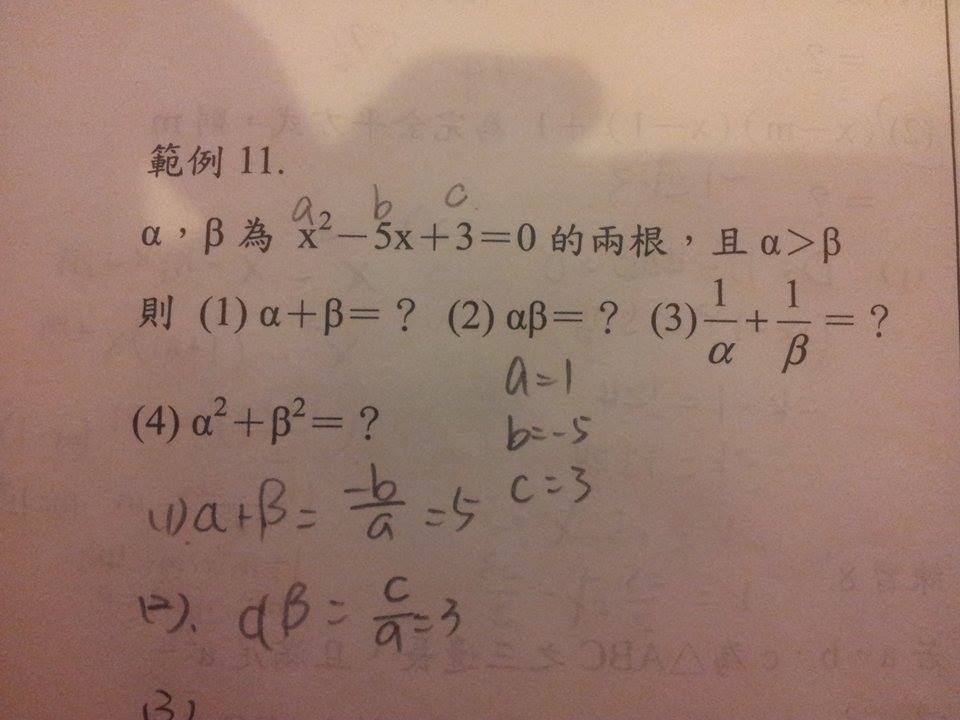 範例 11.
a b c
α，β 為 x²－5x＋3＝0 的兩根，且 α＞β
則 (1) α＋β＝？ (2) αβ＝？ (3) 1/α＋1/β＝？
(4) α²＋β²＝？
a=1
b=-5
c=3
(1) α+β= -b/a =5
(2). αβ = c/a =3
(3)